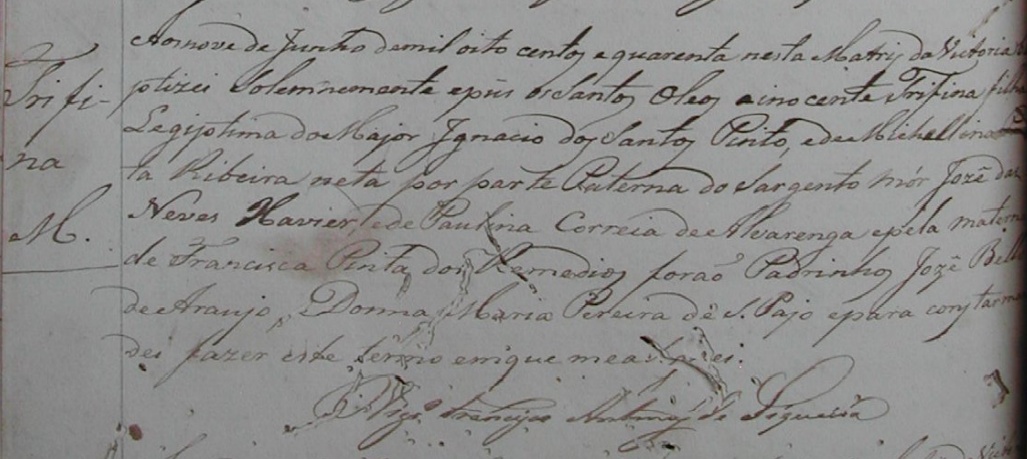 Aos nove de Junho de mil oito centos e quarenta nesta Matriz da Victoria
Trifi-
ptizei Solemnemente e pús os Santos Oleos a inocente Trifina filha
Legiptima do Major Ignacio dos Santos Pinto, e de Michellina
na
ta Ribeira neta por parte Paterna do Sargento mór Jozé das
Neves Xavier, e de Paulina Correia de Alvarenga e pela materna
M.
de Francisca Pinta dos Remedios forão Padrinhos Jozé Bello
de Araujo, Donna Maria Pereira de S. Pajo e para constar m
dei fazer este termo em que me assignei.
Francisco Antunes de Siqueira